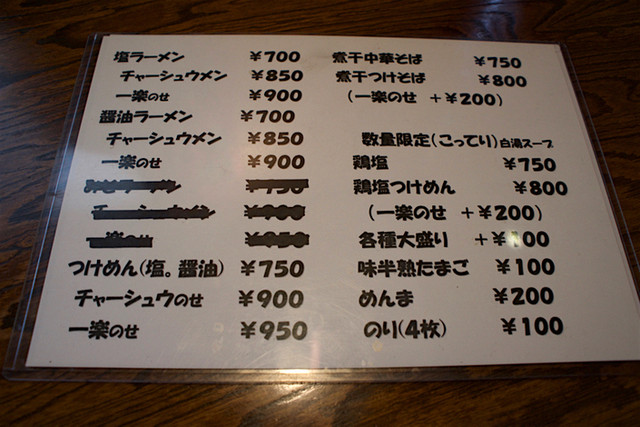 塩ラーメン ¥700
チャーシュウメン ¥850
一楽のせ ¥900
醤油ラーメン ¥700
チャーシュウメン ¥850
一楽のせ ¥900
つけめん(塩。醤油) ¥750
チャーシュウのせ ¥900
一楽のせ ¥950
煮干中華そば ¥750
煮干つけそば ¥800
(一楽のせ +¥200)
数量限定(こってり)白湯スープ
鶏塩 ¥750
鶏塩つけめん ¥800
(一楽のせ +¥200)
各種大盛り +¥100
味半熟たまご ¥100
めんま ¥200
のり(4枚) ¥100